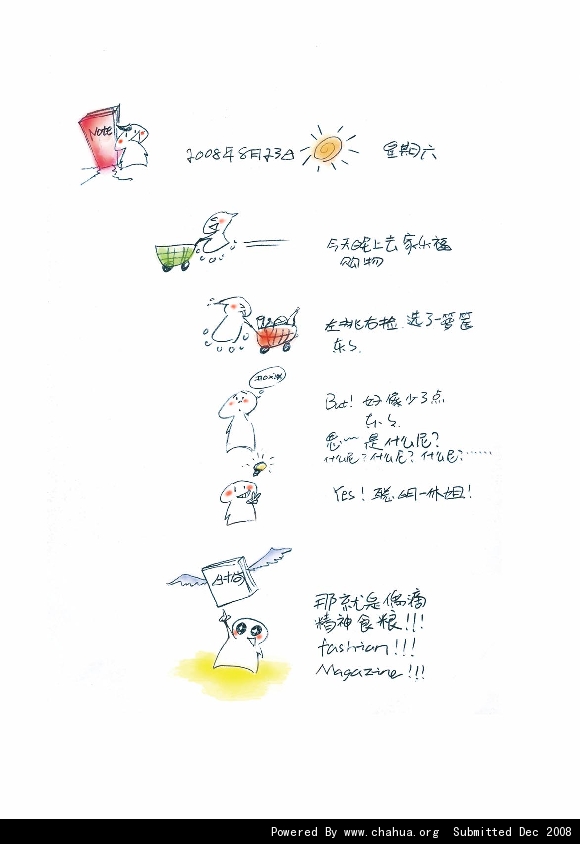 NOTE
2008年8月23日 星期六
今天晚上去家乐福
购物
左挑右捡.选了一箩筐
东东.
But! 好像少了点
东东.
恩~~ 是什么呢?
什么呢?什么呢?什么呢?……
Yes! 聪明一休姐!
那就是偶滴
精神食粮!!!
fashion!!!
Magazine!!!
Powered By www.chahua.org Submitted Dec 2008